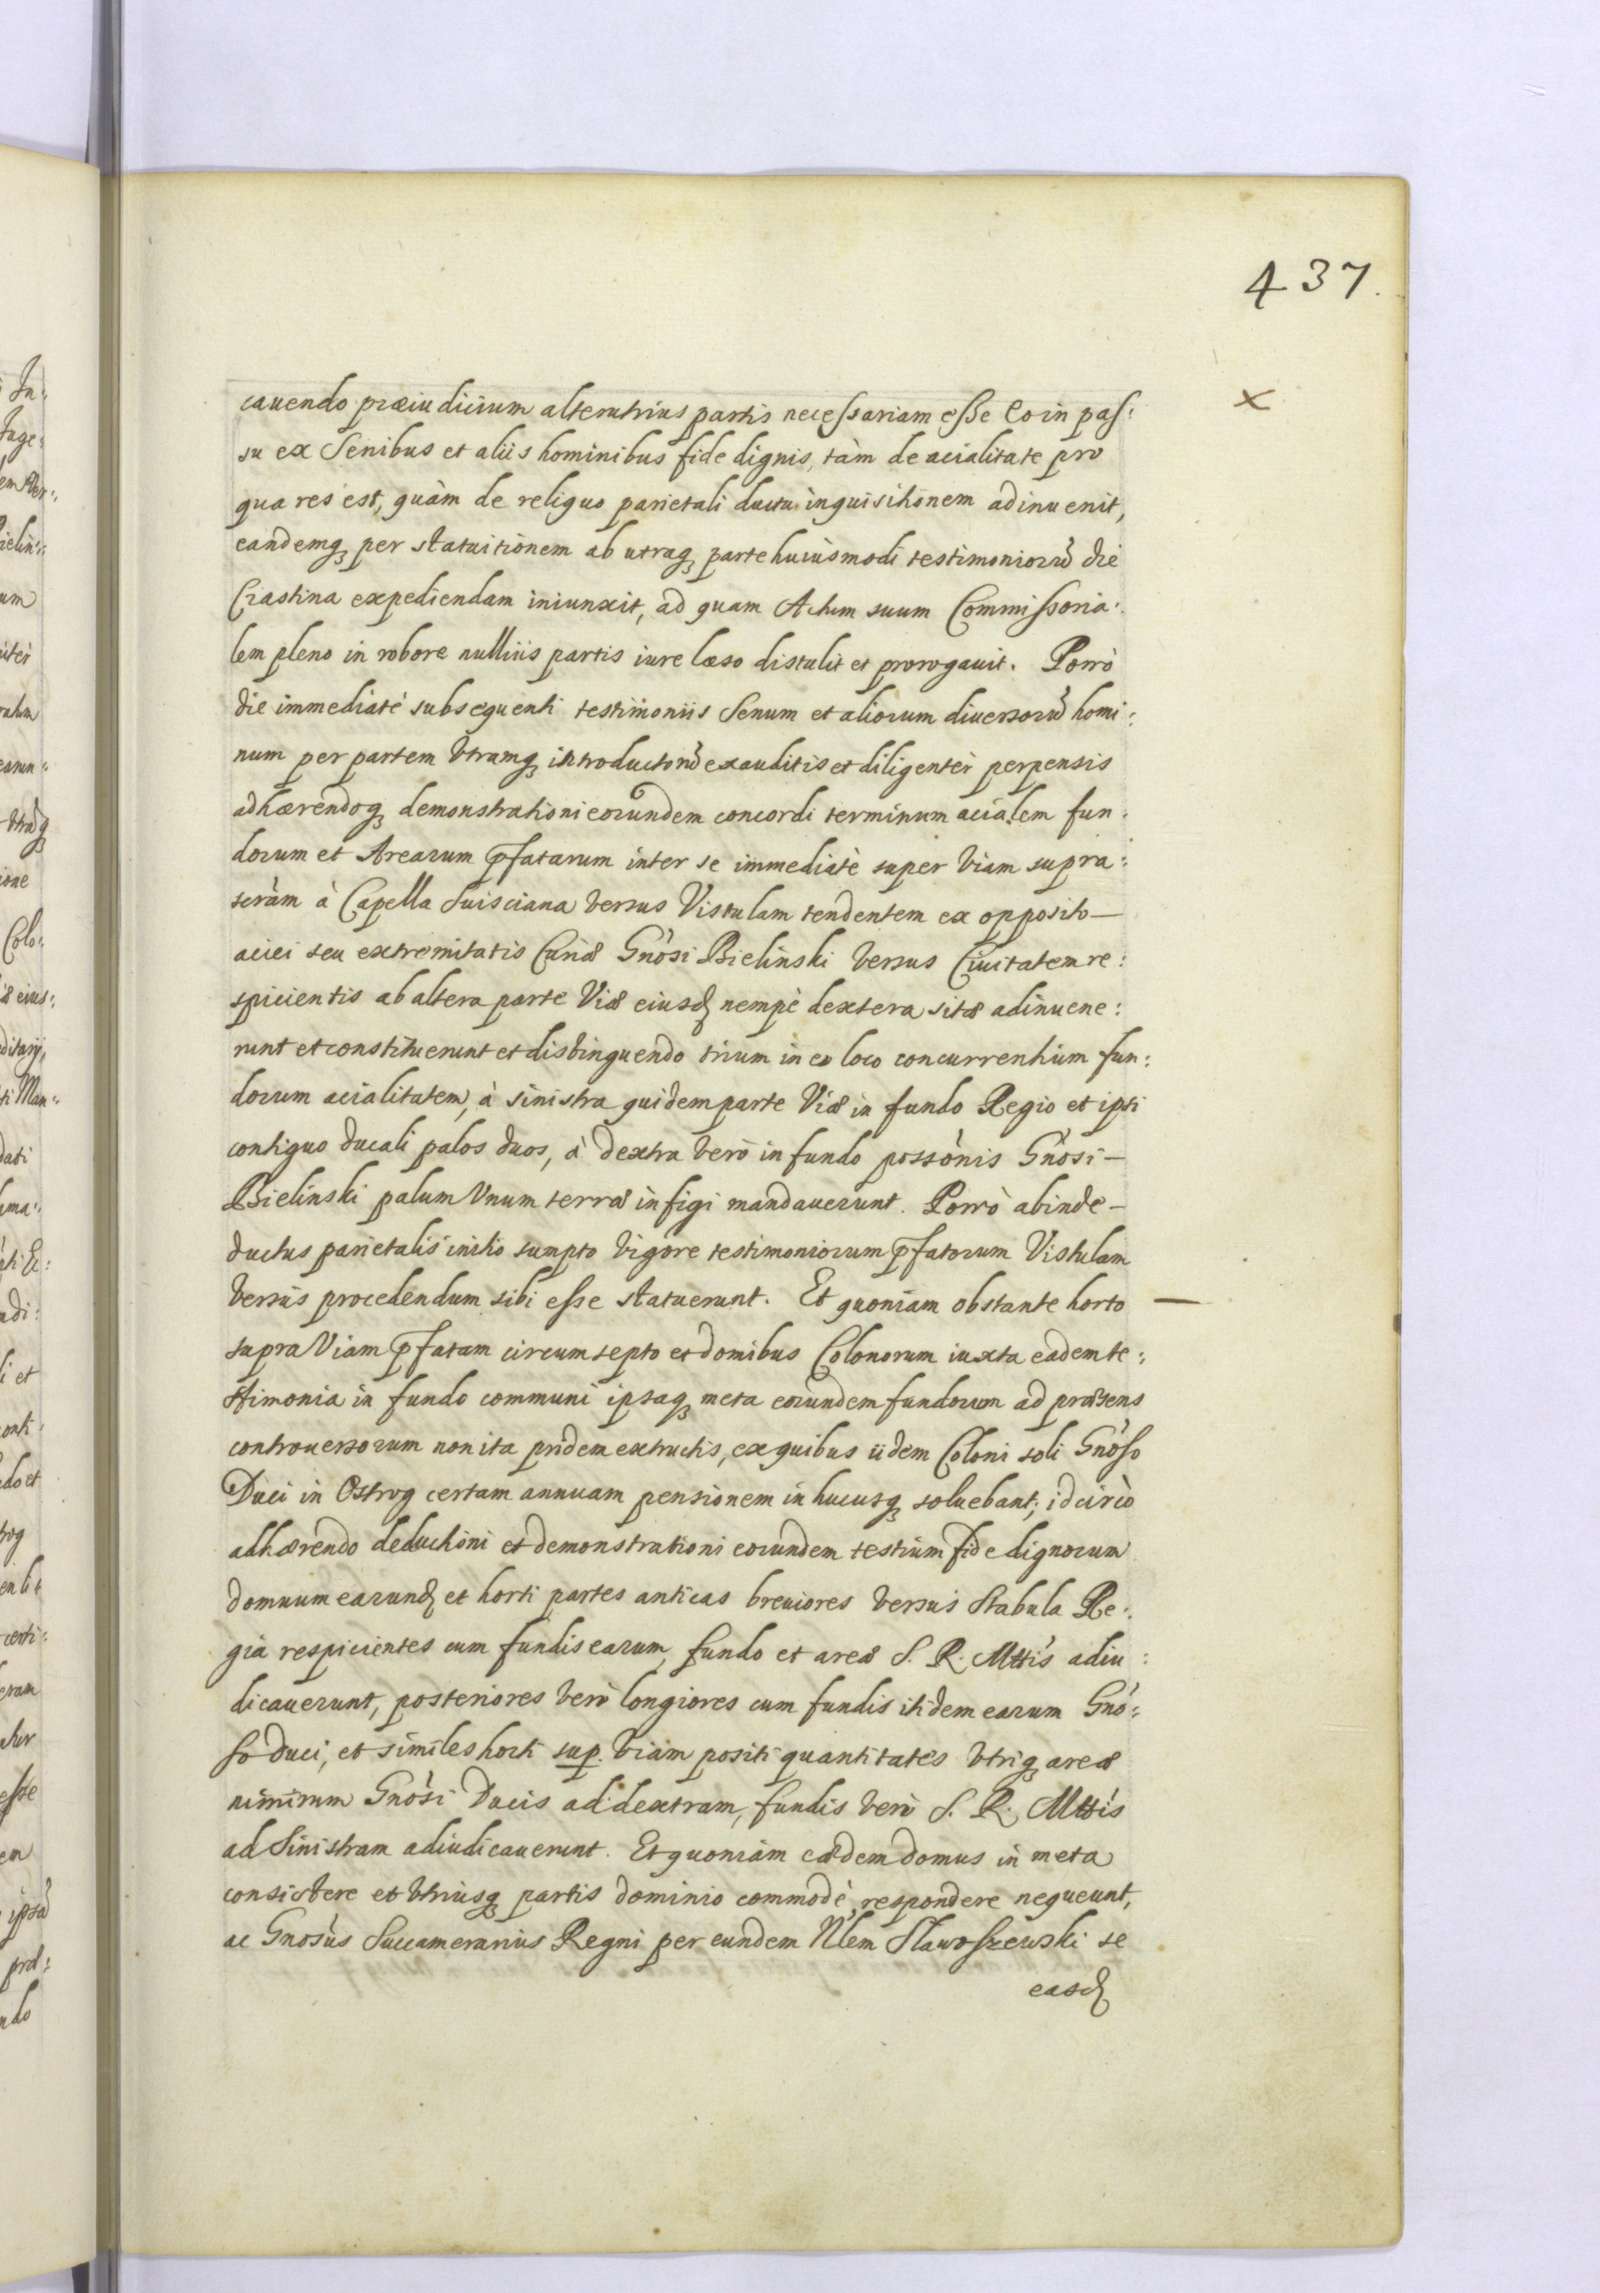 437.
x
cauendo præiudicium alterutrius partis necessariam esse Eo in pas:
su ex Senibus et aliis hominibus fide dignis, tàm de acialitate pro
qua res est, quàm de reliquo parietali ductu inquisitionem adinuenit,
eandemq₃ per statuitionem ab utraq₃ parte huiusmodi testimoniorū die
Crastina expediendam iniunxit, ad quam Actum suum Commissoria:
lem pleno in robore nullius partis iure læso distulit et prorogauit. Porrò
die immediatè subsequenti testimoniis Senum et aliorum diuersorū homi:
num per partem Vtramq₃ introductorū exauditis et diligentèr perpensis
adhærendoq₃ demonstrationi eorundem concordi terminum acialem fun:
dorum et Arearum pfatarum inter se immediatè super Viam supra:
scràm à Capella Suisciana Versus Vistulam tendentem ex opposito—
aciei seu extremitatis Curiæ Gnòsi Bielinski Versus Ciuitatem re:
spicientis ab altera parte Viæ eiusd nempè dextera sitæ adinuene:
runt et constituerunt et distinguendo trium in eo loco concurrentium fun:
dorum acialitatem, à sinistra quidem parte Viæ in fundo Regio et ipsi
contiguo ducali palos duos, à dextra Verò in fundo possònis Gnòsi—
Bielinski palum Vnum terræ infigi mandauerunt. Porrò abinde—
ductus parietalis initio sumpto Vigore testimoniorum pfatorum Vistulam
Versùs procedendum sibi esse statuerunt. Et quoniam obstante horto —
supra Viam pfatam circumsepto et domibus Colonorum iuxta eadem te:
stimonia in fundo communi ipsaq₃ meta eorundem fundorum ad præsens
controuersorum non ita pridem extructis, ex quibus iidem Coloni soli Gnòso
Duci in Ostrog certam annuam pensionem in hucusq₃ soluebant; idcircò
adhærendo deductioni et demonstrationi eorundem testium fide dignorum
domuum earund et horti partes anticas breuiores Versus Stabula Re:
gia respicientes cum fundis earum, fundo et areæ S. R. Mttis adiu:
dicauerunt, posteriores Verò longiores cum fundis itidem earum Gnò:
so Duci, et similes horti sup. Viam positi quantitates Vtriq₃ areæ
nimirum Gnòsi Ducis ad dextram, fundis Verò S. R. Mttis
ad Sinistram adiudicauerunt. Et quoniàm eædem domus in meta
consistere et Vtriusq₃ partis dominio commodè respondere nequeunt,
ac Gnosùs Succamerarius Regni per eundem Nlem Slawoszewski se
easd